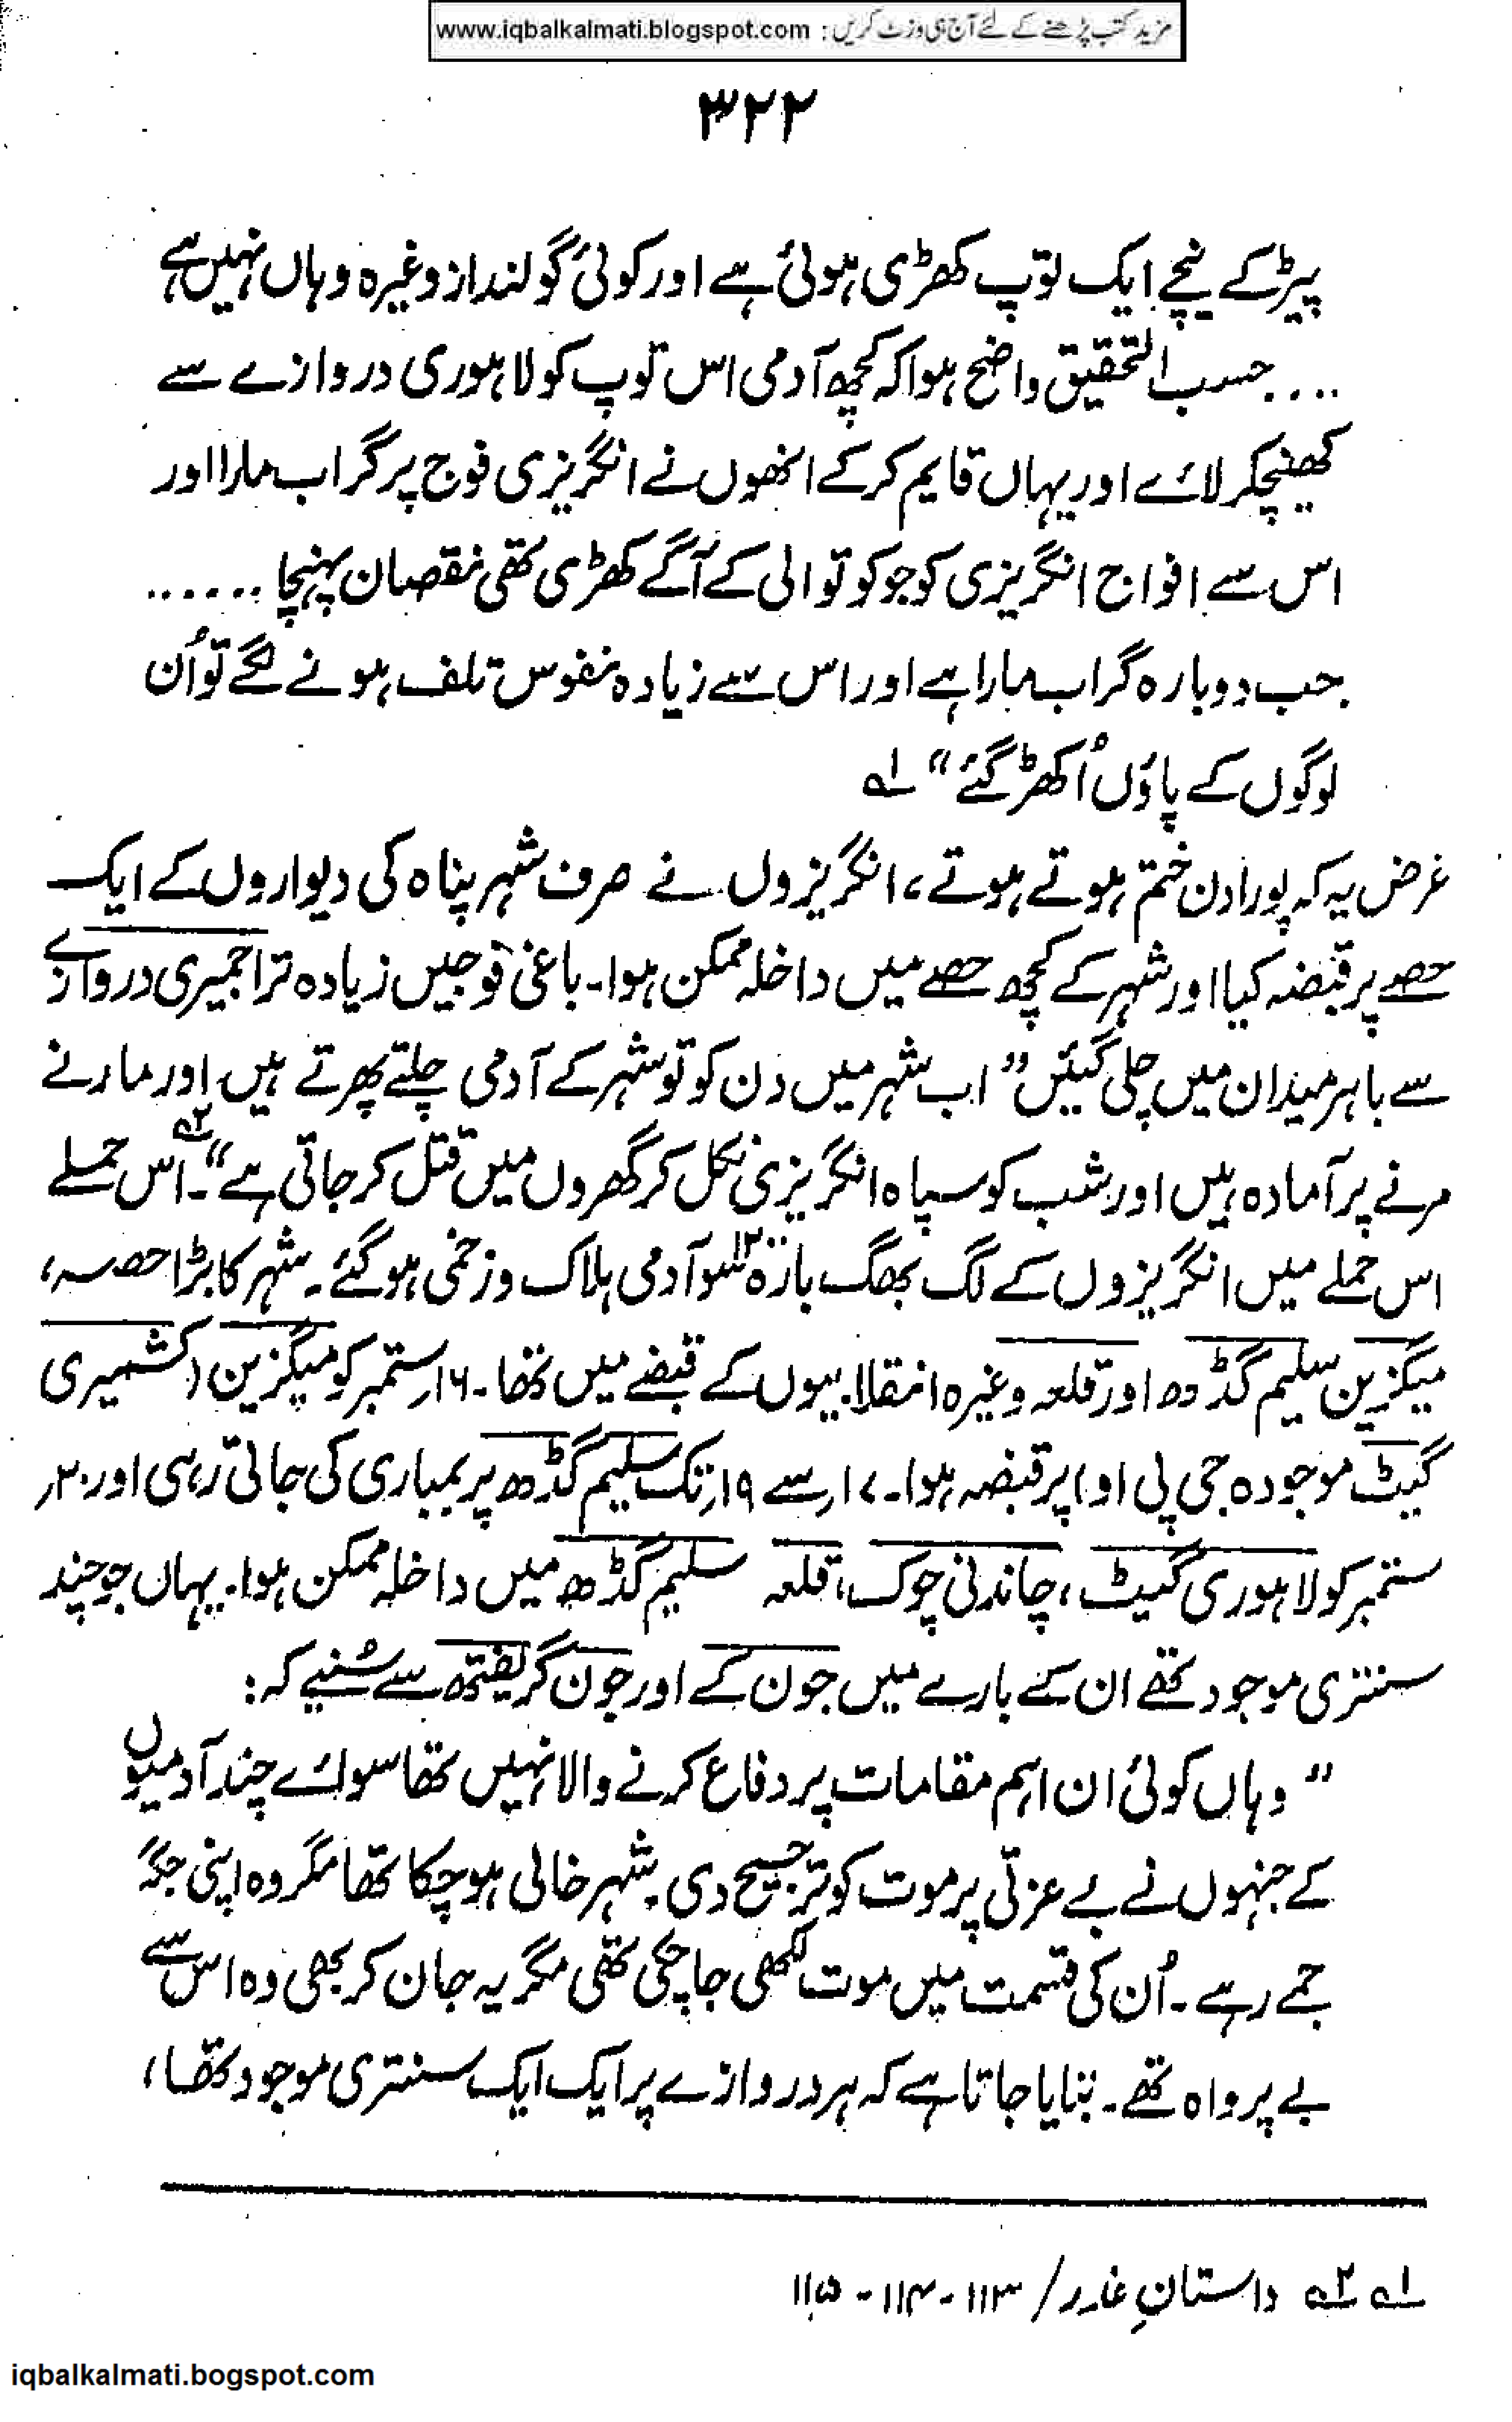 مزید کتب پڑھنے کے لئے آج ہی وزٹ کریں : www.iqbalkalmati.blogspot.com
۳۲۲
پیڑ کے نیچے ایک توپ کھڑی ہوئی ہے اور کوئی گولنداز وغیرہ وہاں نہیں ہے
.... حسب التحقیق واضح ہوا کہ کچھ آدمی اس توپ کو لاہوری دروازے سے
کھینچکر لائے اور یہاں قایم کر کے انھوں نے انگریزی فوج پر گراب مارا اور
اس سے افواج انگریزی کو جو کوتوالی کے آگے کھڑی تھی نقصان پہنچا ......
جب دوبارہ گراب مارا ہے اور اس سے زیادہ نفوس تلف ہونے لگے تو اُن
لوگوں کے پاؤں اُکھڑ گئے“ لہ۱
غرض یہ کہ پورا دن ختم ہوتے ہوتے، انگریزوں نے صرف شہر پناہ کی دیواروں کے ایک
حصے پر قبضہ کیا اور شہر کے کچھ حصے میں داخلہ ممکن ہوا۔ باغی فوجیں زیادہ تر اجمیری دروازے
سے باہر میدان میں چلی گیئں” اب شہر میں دن کو تو شہر کے آدمی چلتے پھرتے ہیں اور مارنے
مرنے پر آمادہ ہیں اور شب کو سپاہ انگریزی نکل کر گھروں میں قتل کر جاتی ہے“۔۲ اس حملے
اس حملے میں انگریزوں کے لگ بھگ بارہ سو ۱۲۰۰ آدمی ہلاک و زخمی ہو گئے۔ شہر کا بڑا حصہ،
میگزین سلیم گڈھ اور قلعہ وغیرہ انقلابیوں کے قبضے میں تھا۔ ۱۶؍ ستمبر کو میگزین (کشمیری
گیٹ موجودہ جی پی او) پر قبضہ ہوا۔ ۱۷؍ سے ۱۹؍ تک سلیم گڈھ پر بمباری کی جاتی رہی اور ۲۰؍
ستمبر کو لاہوری گیٹ، چاندنی چوک، قلعہ سلیم گڈھ میں داخلہ ممکن ہوا۔ یہاں جو چند
سنتری موجود تھے ان کے بارے میں جون کے اور جون گریفتھ سے سُنیے کہ:
” وہاں کوئی ان اہم مقامات پر دفاع کرنے والا نہیں تھا سوائے چند آدمیوں
کے جنہوں نے بے عزتی پر موت کو ترجیح دی۔ شہر خالی ہو چکا تھا مگر وہ اپنی جگہ
جمے رہے۔ اُن کی قسمت میں موت لکھی جا چکی تھی مگر یہ جان کر بھی وہ اس سے
بے پرواہ تھے۔ بتایا جاتا ہے کہ ہر دروازے پر ایک ایک سنتری موجود تھا،
۱ ۲ داستانِ غدر / ۱۱۳ - ۱۱۴ - ۱۱۵
iqbalkalmati.bogspot.com